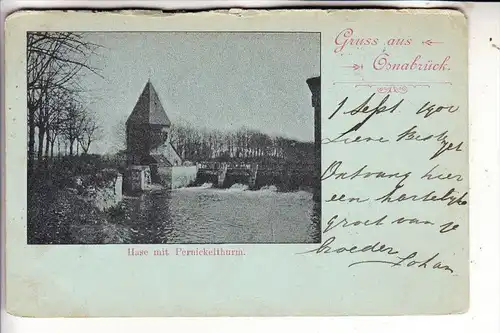 Gruss aus
Osnabrück.
1 Sept 1900
Lieve
Ontvang hier
een hartelijke
groet van je
broeder Johan
Hase mit Pernickelthurm.